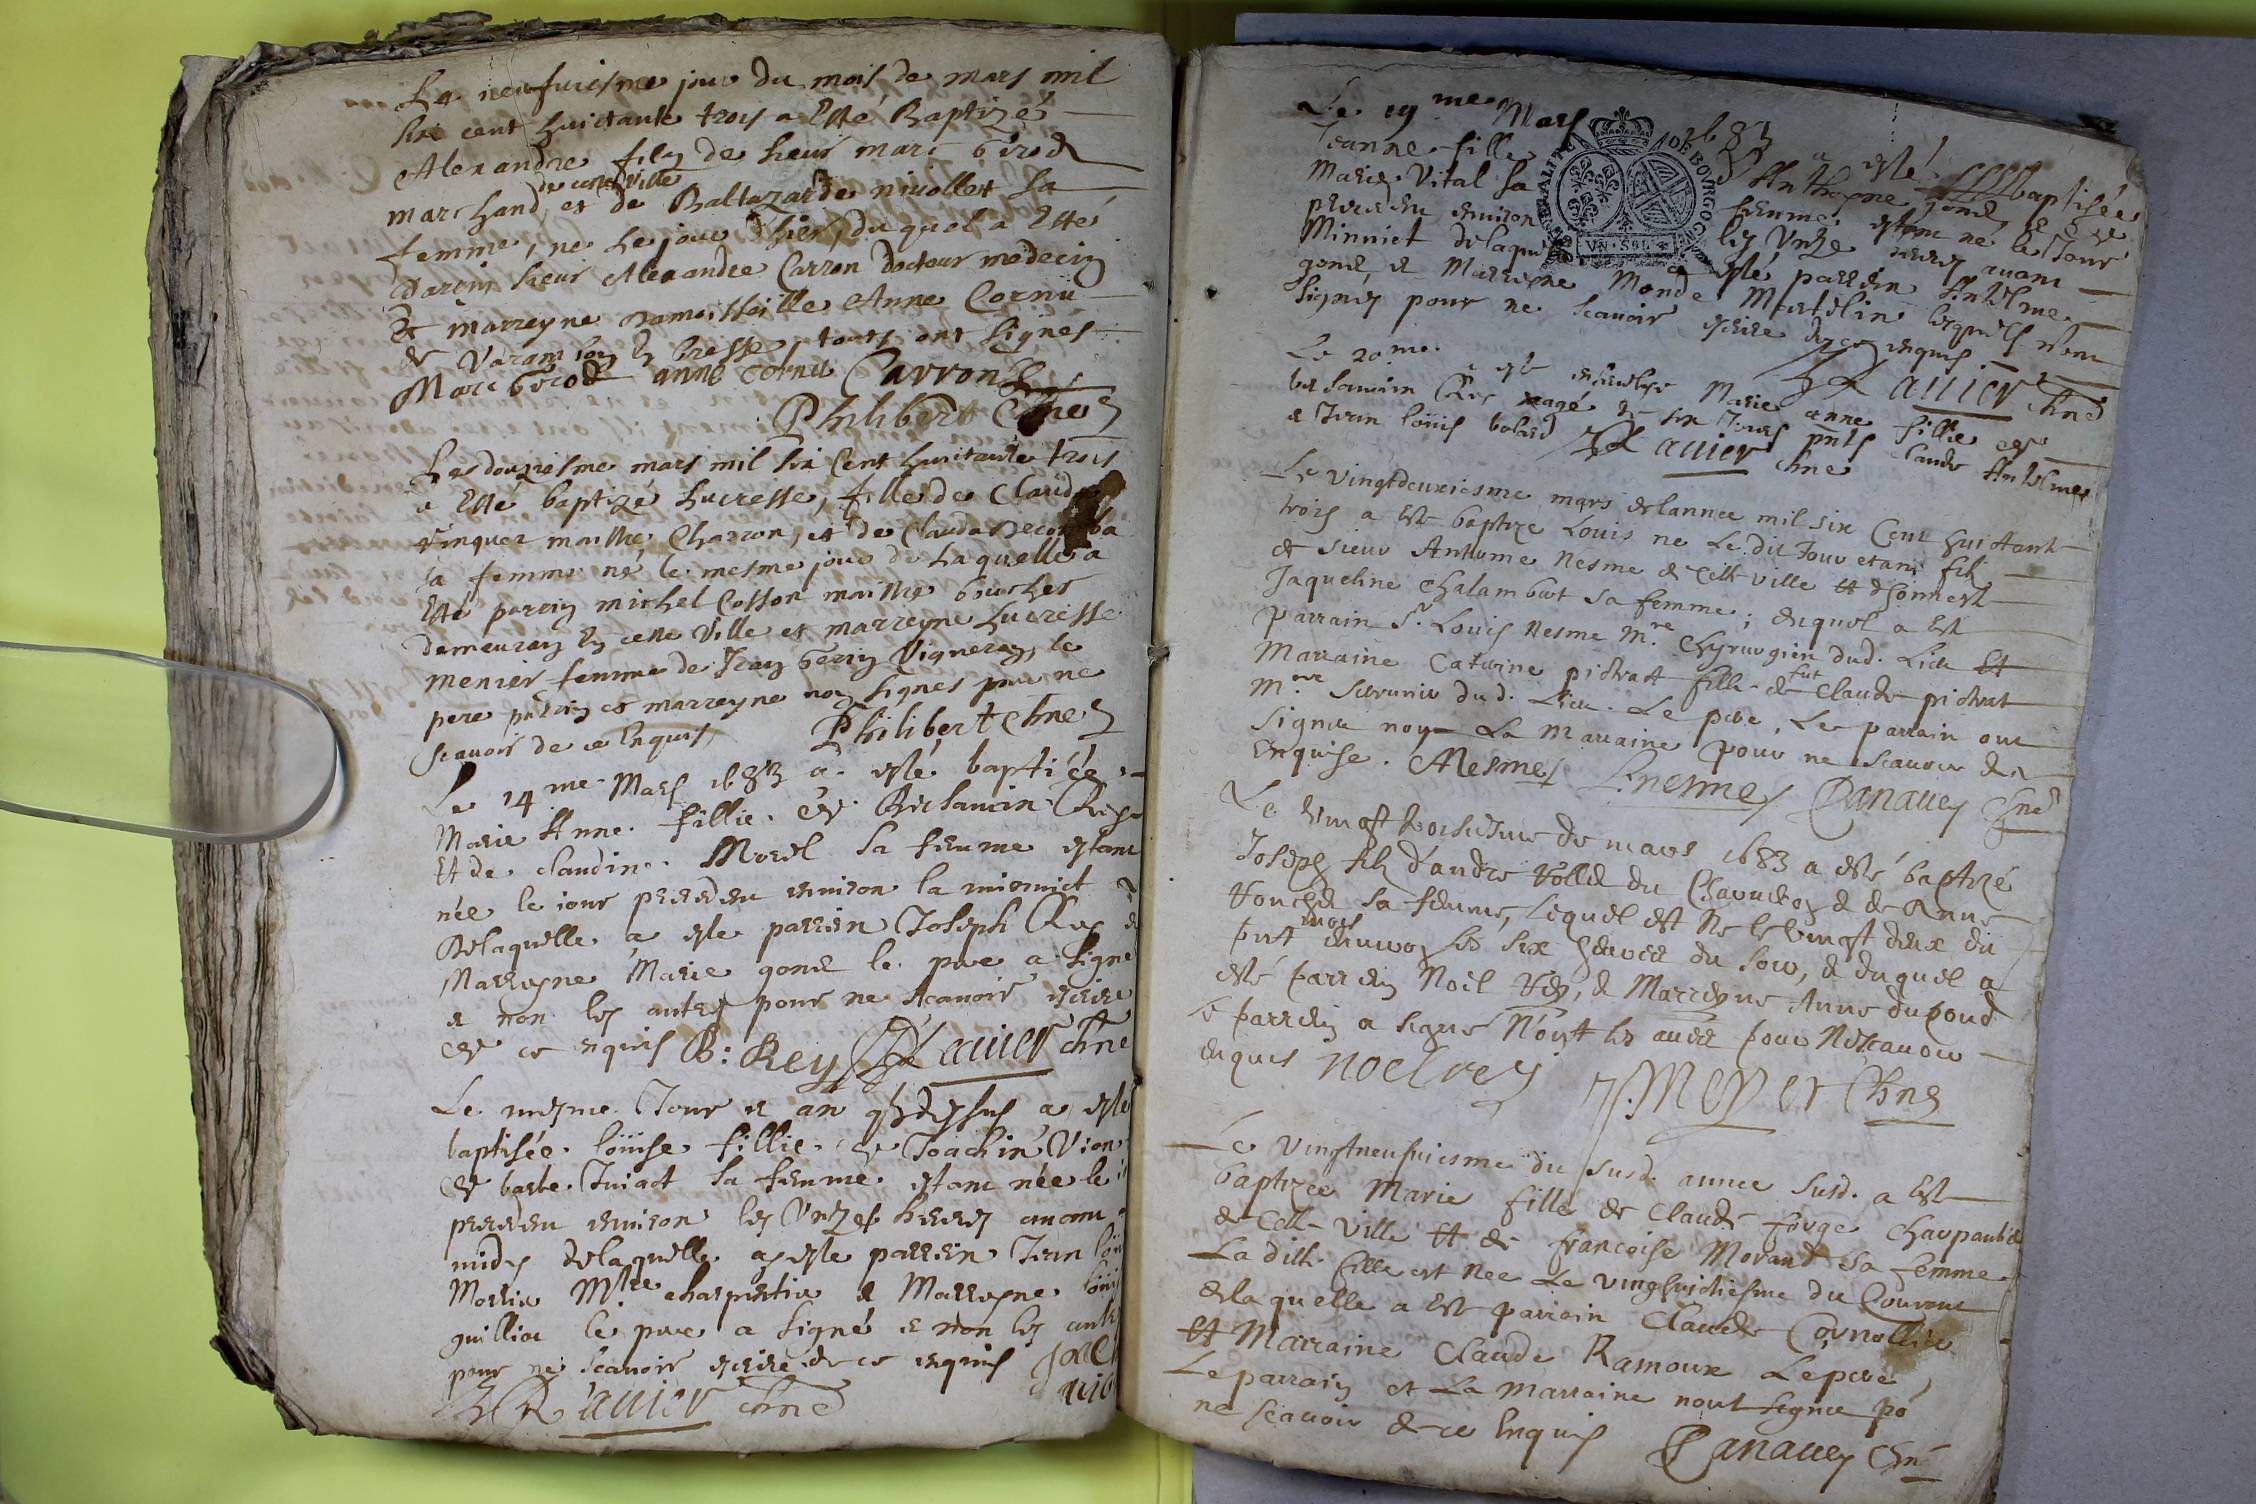 Le neufuiesme jour du mois de mars mil
six cent huictante trois a Esté Baptizé
Alexandre filz de sieur marc Girod
marchand de ceste ville et de Baltazarde nivollet sa
femme, ne le jour d'hier, duquel a Esté
parein sieur Alexandre Carron docteur medecin
Et marreyne damoiselle Anne Cornu
de Varambon En bresse, touts ont signés
Marc Girod anne cornu Carron
Philibert Chne
Le douziesme mars mil six Cent huictante trois
a Esté baptizé Lucresse, fille de Claude
vinquer maistre Charron, et de Clauda
sa femme né le mesme jour de Laquelle a
Esté parein michel Cosson maistre boucher
demeurant En ceste Ville et marreyne Lucresse
menier femme de Jean Vigneron, le
pere parein et marreyne non signes pour ne
scavoir de ce Enquis, Philibert Chne
Le 14me Mars 1683 a esté baptiée
Marie Anne fillie de Benlamin Rey
Et de claudine Morel sa femme estant
née le iour precedent enuiron la mienuict
De laquelle a este parrein Joseph Rey et
Marreyne Marie gone le pere a signé
et non les autres pour ne scauoir escrire
de ce enquis B: Rey Lauier chne
Le mesme Jour et an que dessus a esté
baptisée loüise fillie de Joachin Vion
et barbe Juiact sa femme estant née le
precedent enuiron les Unze heures auant
midy de laquelle a este parrein Jean
Mtre charpentier et Marreyne
guilliot le pere a signé et non les
pour ne scauoir escrire de ce enquis
Lauier chne
Le 19me Mars 1683 a esté baptisée
Jeanne fille Anthoyne gone et de
Marie Vital sa femme estant né le Jour
precedent enuiron les Unze heures auant
Minuict de laquelle a esté parrein Antelme
gone, et Marreyne Monde Martelin lesquels n'ont
signés pour ne scauoir escrire de ce enquis
Lauier chne
Le 20me a esté enseuelye Marie anne fillie de
benlamin Rey aagé de six Jours pnts Claude Antelme
et Jean loüis bolard Lauier chne
Le vingtdeuxiesme mars de lannee mil six Cent huictante
trois a este baptize Louis ne Le dit Jour etant filz
de sieur Antoume Nesme de Cette ville Et d'honneste
Jaqueline Chalambert sa femme; duquel a Este
parrain Sr. Louis Nesme Mre Chyrurgien dud. Lieu Et
Marraine Caterine pictrat fille de fut Claude pictrat
Mre serrurier dud. Lieu. Le pere, Le parrain ont
signee non La Marraine pour ne scauoir de ce
Enquise. ANesme L. nesme Danauey Chne
Le vingt troisiesme de mars 1683 a esté baptizé
Joseph filz d'andre de Anne
sa femme, lequel est Ne le vingt deux du
mois enuiron les six heures du soir, & duquel a
esté parrein Noël Rey, & Marreyne Anne dupond
le parrein a signé Non les autres pour Ne scauoir
enquis noel rey Meyer Chne
Le Vingtneufuiesme du susd. annee susd. a Este
baptizee Marie fille de Claude forge Charpantier
de Cette Ville Et de francoise Morand sa femme
La dite fille est Nee Le vingthuictiesme du Courant
de la quelle a Este parrain Claude Cornollier
Et Marraine Claude Ramoux Le pere,
Le parrain et La Marraine nont signee po
ne scauoir de ce Enquis Danauey Chne
GENERALITE DE BOVRGOG
VN·SOL